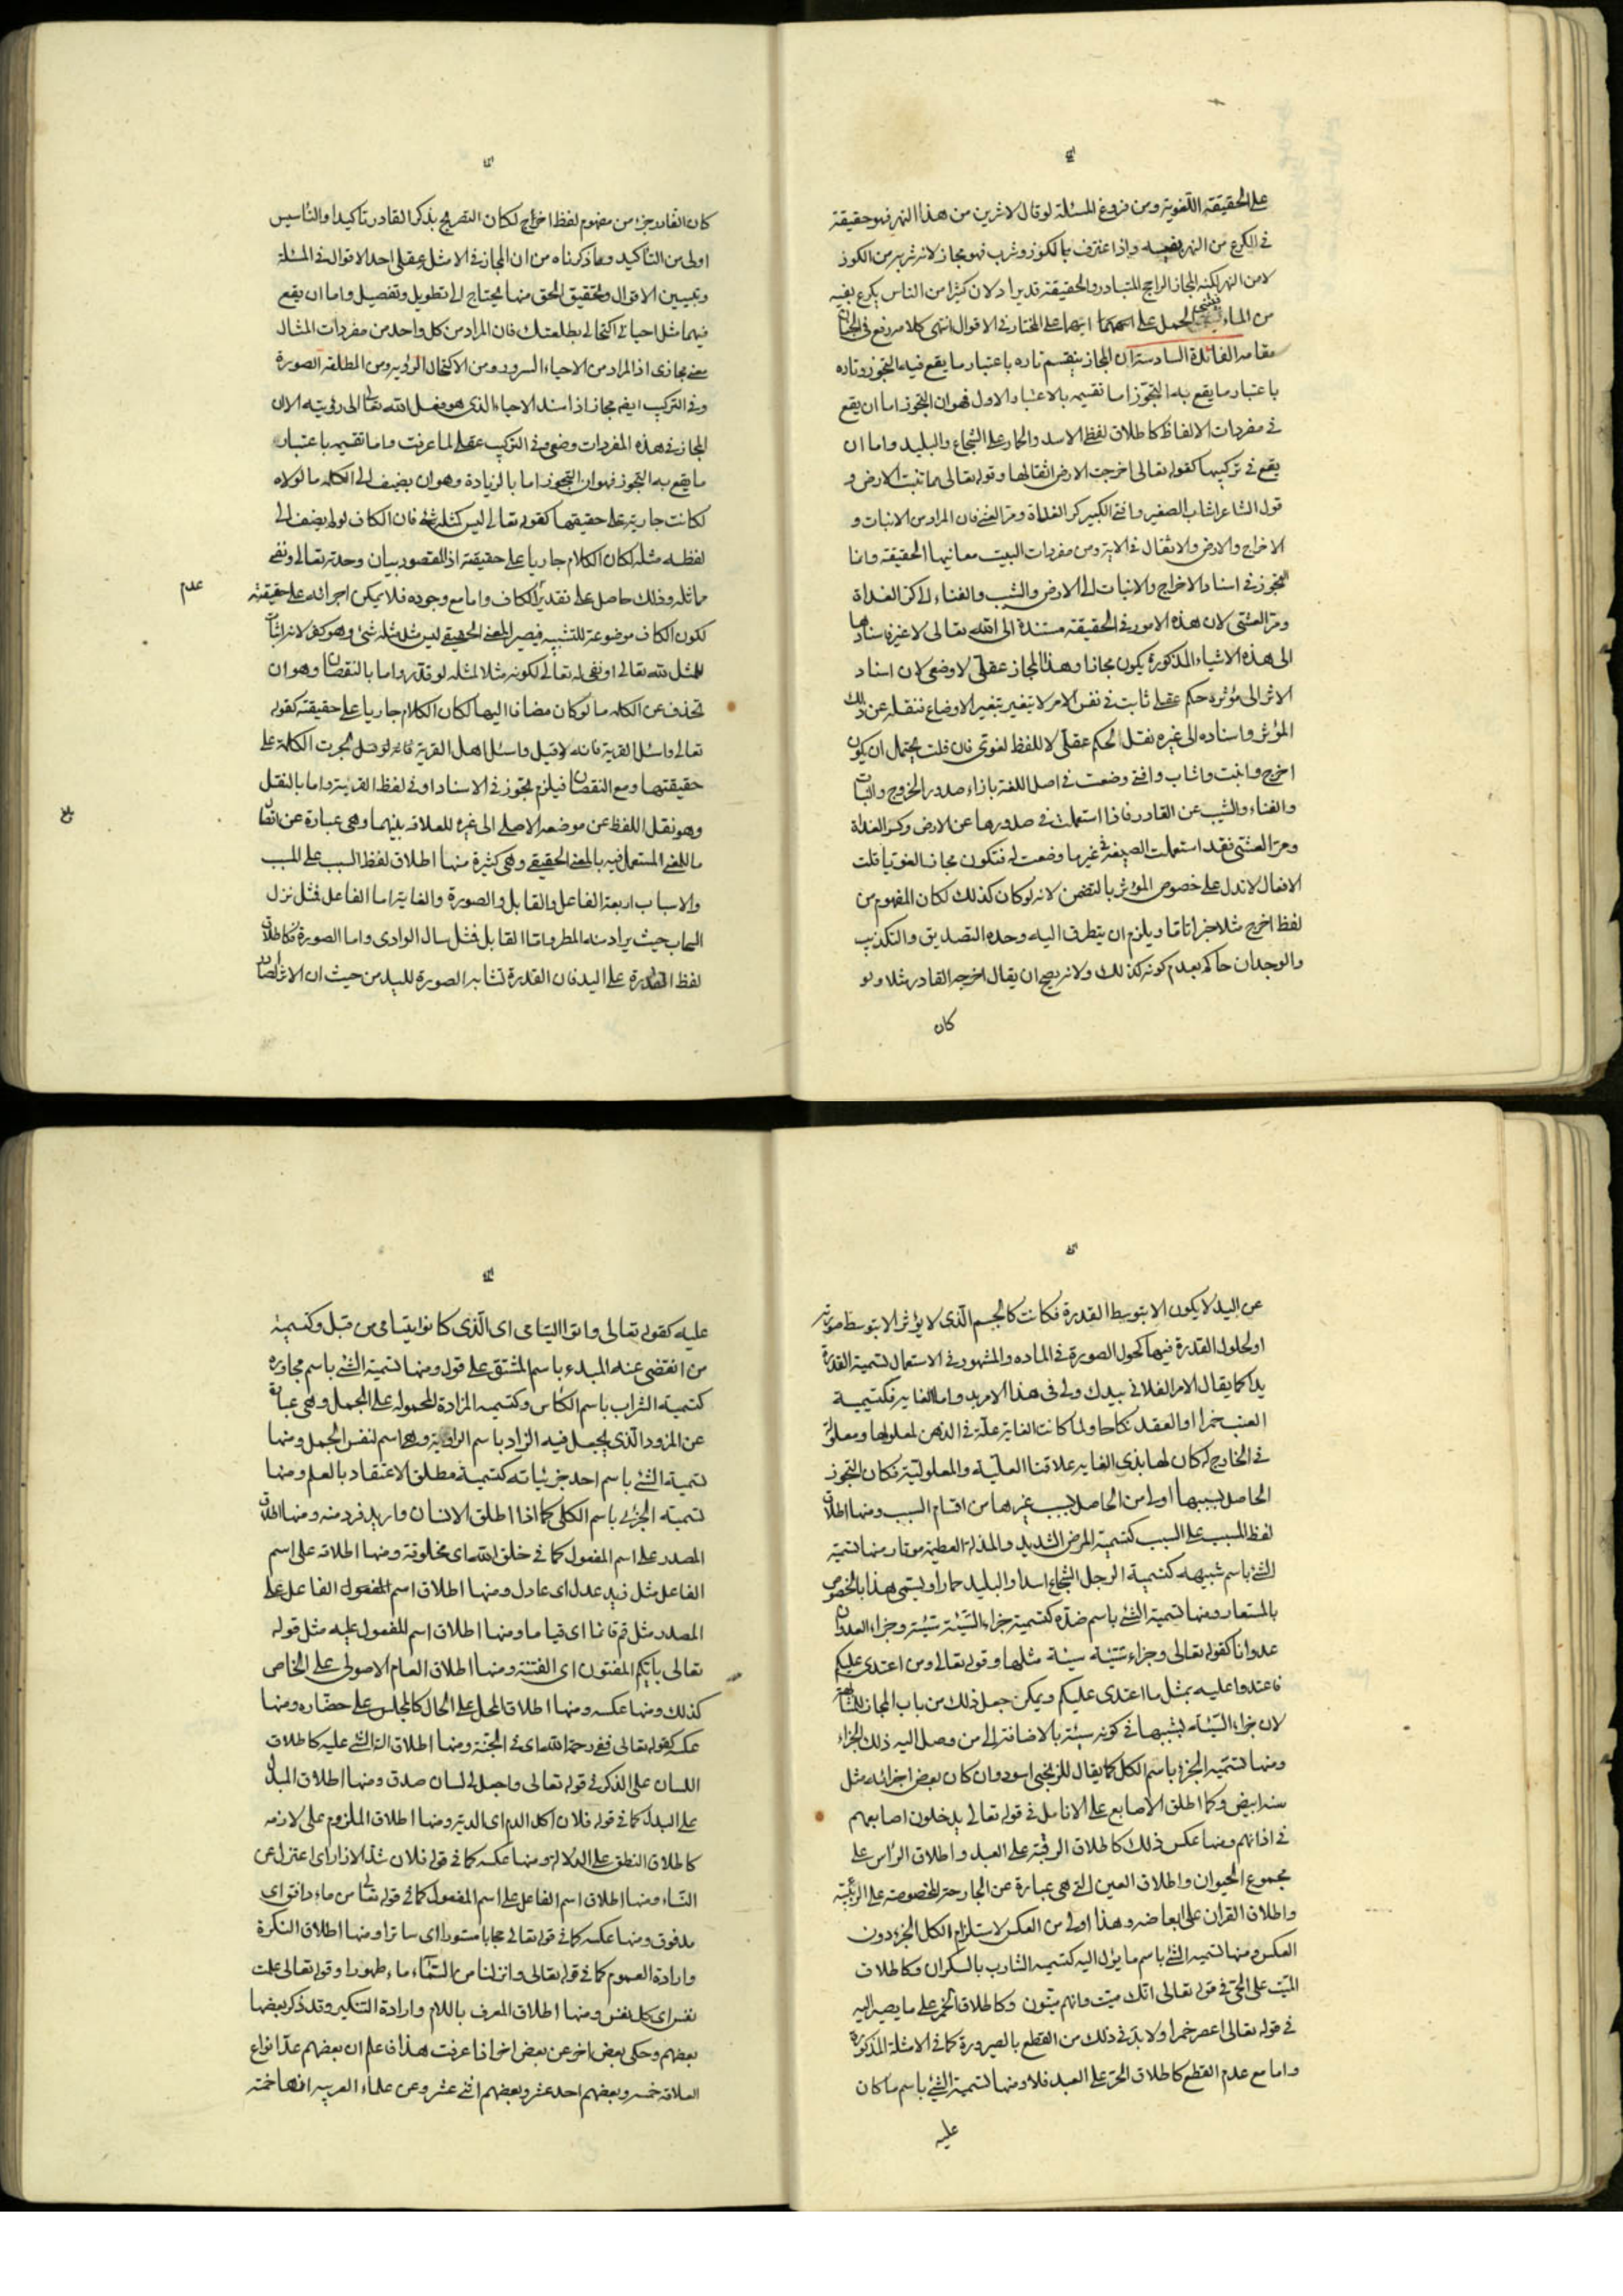 على الحقيقة اللغوية ومن فروع المسئلة لو قال لاشربن من هذا النهر فهو حقيقة
في الكرع من النهر بفيه واذا اغترف بالكوز وشرب فهو مجاز لانه شربه من الكوز
لا من النهر لكنه المجاز الراجح المتبادر والحقيقة قد يراد لان كثيرا من الناس يكرع بفيه
من الماء الحمل على ايهما على المختار في الاقوال انتهى كلامه رفع في الجنان
مقامه الفائدة السادسة ان المجاز ينقسم تاره باعتبار ما يقع فيه التجوز وتاره
باعتبار ما يقع به التجوّز اما تقسيمه بالاعتبار الاول فهو ان التجوز اما ان يقع
في مفردات الالفاظ كاطلاق لفظ الاسد والحمار على الشجاع والبليد واما ان
يقع في تركيبها كقوله تعالى اخرجت الارض اثقالها وقوله تعالى مما تنبت الارض و
قول الشاعر اشاب الصغير وافنى الكبير كر الغداة ومر العشي فان المراد من الانبات و
الاخراج والارض والاثقال في الاية ومن مفردات البيت معانيها الحقيقة وانما
التجوز في اسناد الاخراج والانبات الى الارض والشيب والفناء الى كر الغداة
ومرّ العشي لان هذه الامور في الحقيقة مستندة الى الله تعالى لا غيره فاسنادها
الى هذه الاشياء المذكورة يكون مجازا وهذا المجاز عقليّ لا وضعي لان اسناد
الاثر الى مؤثره حكم عقلي ثابت في نفس الامر لا يتغير بتغير الاوضاع فنقله عن ذلك
المؤثر واسناده الى غيره نقل لحكم عقليّ لا للفظ لغوي فان قلت يحتمل ان يكون
اخرج وانبت واشاب وافنى وضعت في اصل اللغة بازاء صدور الخروج والنبات
والفناء والشيب عن القادر فاذا استعملت في صدورها عن الارض وكر الغداة
ومرّ العشي فقد استعملت الصيغة في غير ما وضعت له فتكون مجازا لغويا قلت
الافعال لا تدل على خصوص المؤثر بالتضمن لانه لو كان كذلك لكان المفهوم من
لفظ اخرج مثلا خبرا تاما ويلزم ان يتطرف اليه وحده التصديق والتكذيب
والوجدان حاكم بعدم كونه كذلك ولانه يصح ان يقال اخرجه القادر مثلا ولو
كان
كان القادر جزء من مفهوم لفظ اخراج لكان التصريح بذكر القادر تاكيدا والتأسيس
اولى من التأكيد وما ذكرناه من ان المجاز في الامثل عقلي احد الاقوال في المسئلة
وتبيين الاقوال وتحقيق الحق منها يحتاج الى تطويل وتفصيل واما ان يقع
فيهما مثل احياني اكتحالي بطلعتك فان المراد من كل واحد من مفردات المثال
معنى مجازى اذ المراد من الاحياء السرور ومن الاكتحال الرؤية ومن المطلقة الصورة
وفي التركيب ايضا مجاز اذ اسند الاحياء الذى هو فعل الله تعالى الى رؤيته الا ان
المجاز في هذه المفردات وضعي وفي التركيب عقلي لما عرفت واما تقسيمه باعتبار
ما يقع به التجوز فهو ان التجوز اما بالزيادة وهو ان يضيف الى الكلمه ما لولاه
لكانت جارية على حقيقتها كقوله تعالى ليس كمثله شئ فان الكاف لو لم يضف الى
لفظه مثله لكان الكلام جاريا على حقيقته اذ المقصود بيان وحدته تعالى ونفى
مماثله وذلك حاصل على تقدير الكاف واما مع وجوده فلا يمكن اجرائه على حقيقته
عدم
لكون الكاف موضوعة للتشبيه فيصير المعنى الحقيقي ليس مثل مثله شئ وهو كفر لانه اثبات
للمثل لله تعالى او نفى له تعالى لكونه مثلا لمثله لو قدر واما بالنقصان وهو ان
تحذف عن الكلمه ما لو كان مضافا اليها لكان الكلام جاريا على حقيقته كقوله
تعالى واسئل القرية فانه لو قيل واسئل اهل القرية فانه لو قيل لجرت الكلمة على
حقيقتها ومع النقصان فيلزم تجوز في الاسناد او في لفظ القرية واما بالنقل
وهو نقل اللفظ عن موضعه الاصلي الى غيره للعلاقه بينهما وهي عبارة عن اتصال
ما للمعنى المستعمل فيه بالمعنى الحقيقي وهي كثيرة منها اطلاق لفظ السبب على المسبب
والاسباب اربعة الفاعل والقابل والصورة والغاية اما الفاعل فمثل نزل
السحاب حيث يراد منه المطر واما القابل فمثل سال الوادى واما الصورة فكاطلاق
لفظ القدرة على اليد فان القدرة تشابه الصورة لليد من حيث ان الاثر الصادر
عن اليد لا يكون الا بتوسط القدرة فكانت كالجسم الّذى لا يؤثر الا بتوسط صورته
او لحلول القدرة فيها كحول الصورة في الماده والمشهور في الاستعمال تسمية القدرة
يدا كما يقال الامر الفلاني بيدك ولي في هذا الامر يد واما الغايه فكتسمية
العنب خمرا او العقد نكاحا ولما كانت الغاية علة في الذهن لمعلولها ومعلولة
في الخارج له كان لها بذى الغايه علاقتا العليّة والمعلوليّة فكان التجوز
الحاصل بسببها اولى من الحاصل بسبب غيرها من اقسام السبب ومنها اطلاق
لفظ المسبب على السبب كتسمية المرض الشديد والمذلة العظيمة موتا ومنها تسمية
الشئ باسم شبيهه كتسمية الرجل الشجاع اسدا والبليد حمارا ويسمّى هذا بالخصوص
بالمستعار ومنها تسمية الشئ باسم ضدّه كتسمية جزاء السّيّئة سيّئة وجزاء العدوان
عدوانا كقوله تعالى وجزاء سيّئة سيئة مثلها وقوله تعالى ومن اعتدى عليكم
فاعتدوا عليه بمثل ما اعتدى عليكم ويمكن جعل ذلك من باب المجاز للمشابهة
لان جزاء السّيّئة يشبهها في كونه سيئة بالاضافة الى من وصل اليه ذلك الجزاء
ومنها تسميه الجزء باسم الكل كما يقال للزنجي اسود وان كان بعض اجزائه مثل
سنه ابيض وكما اطلق الاصابع على الانامل في قوله تعالى يدخلون اصابعهم
في اذانهم ومنها عكس ذلك كاطلاق الرقبة على العبد واطلاق الرّأس على
مجموع الحيوان واطلاق العين التي هي عبارة عن الجارحة المخصوصة على الربيّئة
واطلاق القران على ابعاضه وهذا اولى من العكس لاستلزام الكل الجزء دون
العكس ومنها تسميه الشئ باسم ما يؤل اليه كتسميه الشارب بالسكران وكاطلاق
الميّت على الحيّ في قوله تعالى انّك ميّت وانهم ميّتون وكاطلاق الخمر على ما يصير اليه
في قوله تعالى اعصر خمرا ولا بدّ في ذلك من القطع بالصيرورة كما في الامثلة المذكورة
واما مع عدم القطع كاطلاق الحرّ على العبد فلا ومنها تسمية الشئ باسم ما كان
عليه
عليه كقوله تعالى واتوا اليتامى اى الّذى كانوا يتامى من قبل وكتسمية
من انقضى عنه المبدء باسم المشتق على قول ومنها تسمية الشئ باسم مجاوره
كتسمية الشراب باسم الكأس وكتسميه المزادة المحموله على الجمل وهي عبارة
عن المزود الّذى يجعل فيه الزاد باسم الراوية وهي اسم لنفس الجمل ومنها
تسمية الشئ باسم احد جزئياته كتسمية مطلق الاعتقاد بالعلم ومنها
تسميته الجزئى باسم الكلى كما اذا اطلق الانسان واريد فرد منه ومنها اطلاق
المصدر على اسم المفعول كما في خلق الله اى مخلوقه ومنها اطلاقه على اسم
الفاعل مثل زيد عدل اى عادل ومنها اطلاق اسم الفاعل على
المصدر مثل قم قائما اى قياما ومنها اطلاق اسم المفعول عليه مثل قوله
تعالى بايّكم المفتون اى الفتنة ومنها اطلاق العام الاصولى على الخاص
كذلك ومنها عكسه ومنها اطلاق المحل على الحال كالمجلس على حضاره ومنها
عكسه كقوله تعالى ففي رحمة الله اى في الجنّة ومنها اطلاق الة الشئ عليه كاطلاق
اللسان على الذكر في قوله تعالى واجعل لي لسان صدق ومنها اطلاق المبدل
على البدل كما في قوله فلان اكل الدم اى الدية ومنها اطلاق الملزوم على لازمه
كاطلاق النطق على الدلالة ومنها عكسه كما في قوله فلان شدّ الازار اى اعتزل عن
النّساء ومنها اطلاق اسم الفاعل على اسم المفعول كما في قوله تعالى من ماء دافق اى
مدفوق ومنها عكسه كما في قوله تعالى حجابا مستورا اى ساترا ومنها اطلاق النكرة
وارادة العموم كما في قوله تعالى وانزلنا من السّماء ماء طهورا وقوله تعالى علمت
نفس اى كل نفس ومنها اطلاق المعرف باللام وارادة التنكير وقد ذكر بعضها
بعضهم وحكى بعض اخر عن بعض اخر اذا عرفت هذا فاعلم ان بعضهم عدّ انواع
العلاقه خمسه وبعضهم احد عشر وبعضهم اثنى عشر وعن علماء العربيه انها خمسة